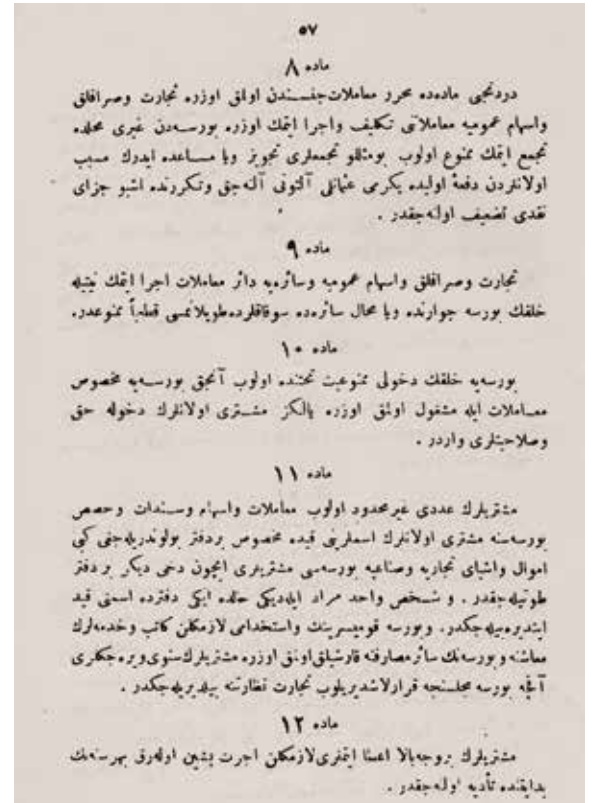 ٥٧
ماده ٨
دردنجی ماده‌ده محرر معاملات جنسندن اولمق اوزره تجارت وصرافلق
واسهام عمومیه معاملاتی تکلیف واجرا ایتمك اوزره بورسه‌دن غیری محلده
تجمع ایتمك ممنوع اولوب بومثللو تجمعلری تجویز ویا مساعده ایدرك مسبب
اولانلردن دفعهٔ اولیده یکرمی عثمانلی آلتونی آلنه‌جق وتکررنده اشبو جزای
نقدی تضعیف اوله‌جقدر .
ماده ٩
تجارت وصرافلق واسهام عمومیه وسائره‌یه دائر معاملات اجرا ایتمك نیتیله
خلقك بورسه جوارنده ویا محال سائره‌ده سوقاقلرده طوپلانمسی قطعیاً ممنوعدر.
ماده ١٠
بورسه‌یه خلقك دخولی ممنوعیت تحتنده اولوب آنجق بورسه‌یه مخصوص
معاملات ایله مشغول اولمق اوزره یالکز مشتری اولانلرك دخوله حق
وصلاحیتلری واردر .
ماده ١١
مشتریلرك عددی غیر محدود اولوب معاملات واسهام وسندات وحصص
بورسه‌سنه مشتری اولانلرك اسملرینی قیده مخصوص بردفتر بولوندریله‌جغی کبی
اموال واشیای تجاریه وصناعیه بورسه‌سی مشتریلری ایچون دخی دیکر بر دفتر
طوتیله‌جقدر . و شخص واحد مراد ایله‌دیکی حالده ایکی دفترده اسمنی قید
ایتدیره‌بیله‌جکدر. وبورسه قومیسرینك واستخدامی لازمکلن کاتب وخدمه‌لرك
معاشنه وبورسه‌نك سائر مصارفنه قارشیلق اولمق اوزره مشتریلرك سنوی ویره‌جکلری
آقچه بورسه مجلسنجه قرارلاشدیریلوب تجارت نظارتنه بیلدیریله‌جکدر .
ماده ١٢
مشتریلرك بروجه‌بالا اعطا ایتملری لازمکلن اجرت پشین اوله‌رق بهر سنه‌نك
بدایتنده تأدیه اوله‌جقدر .